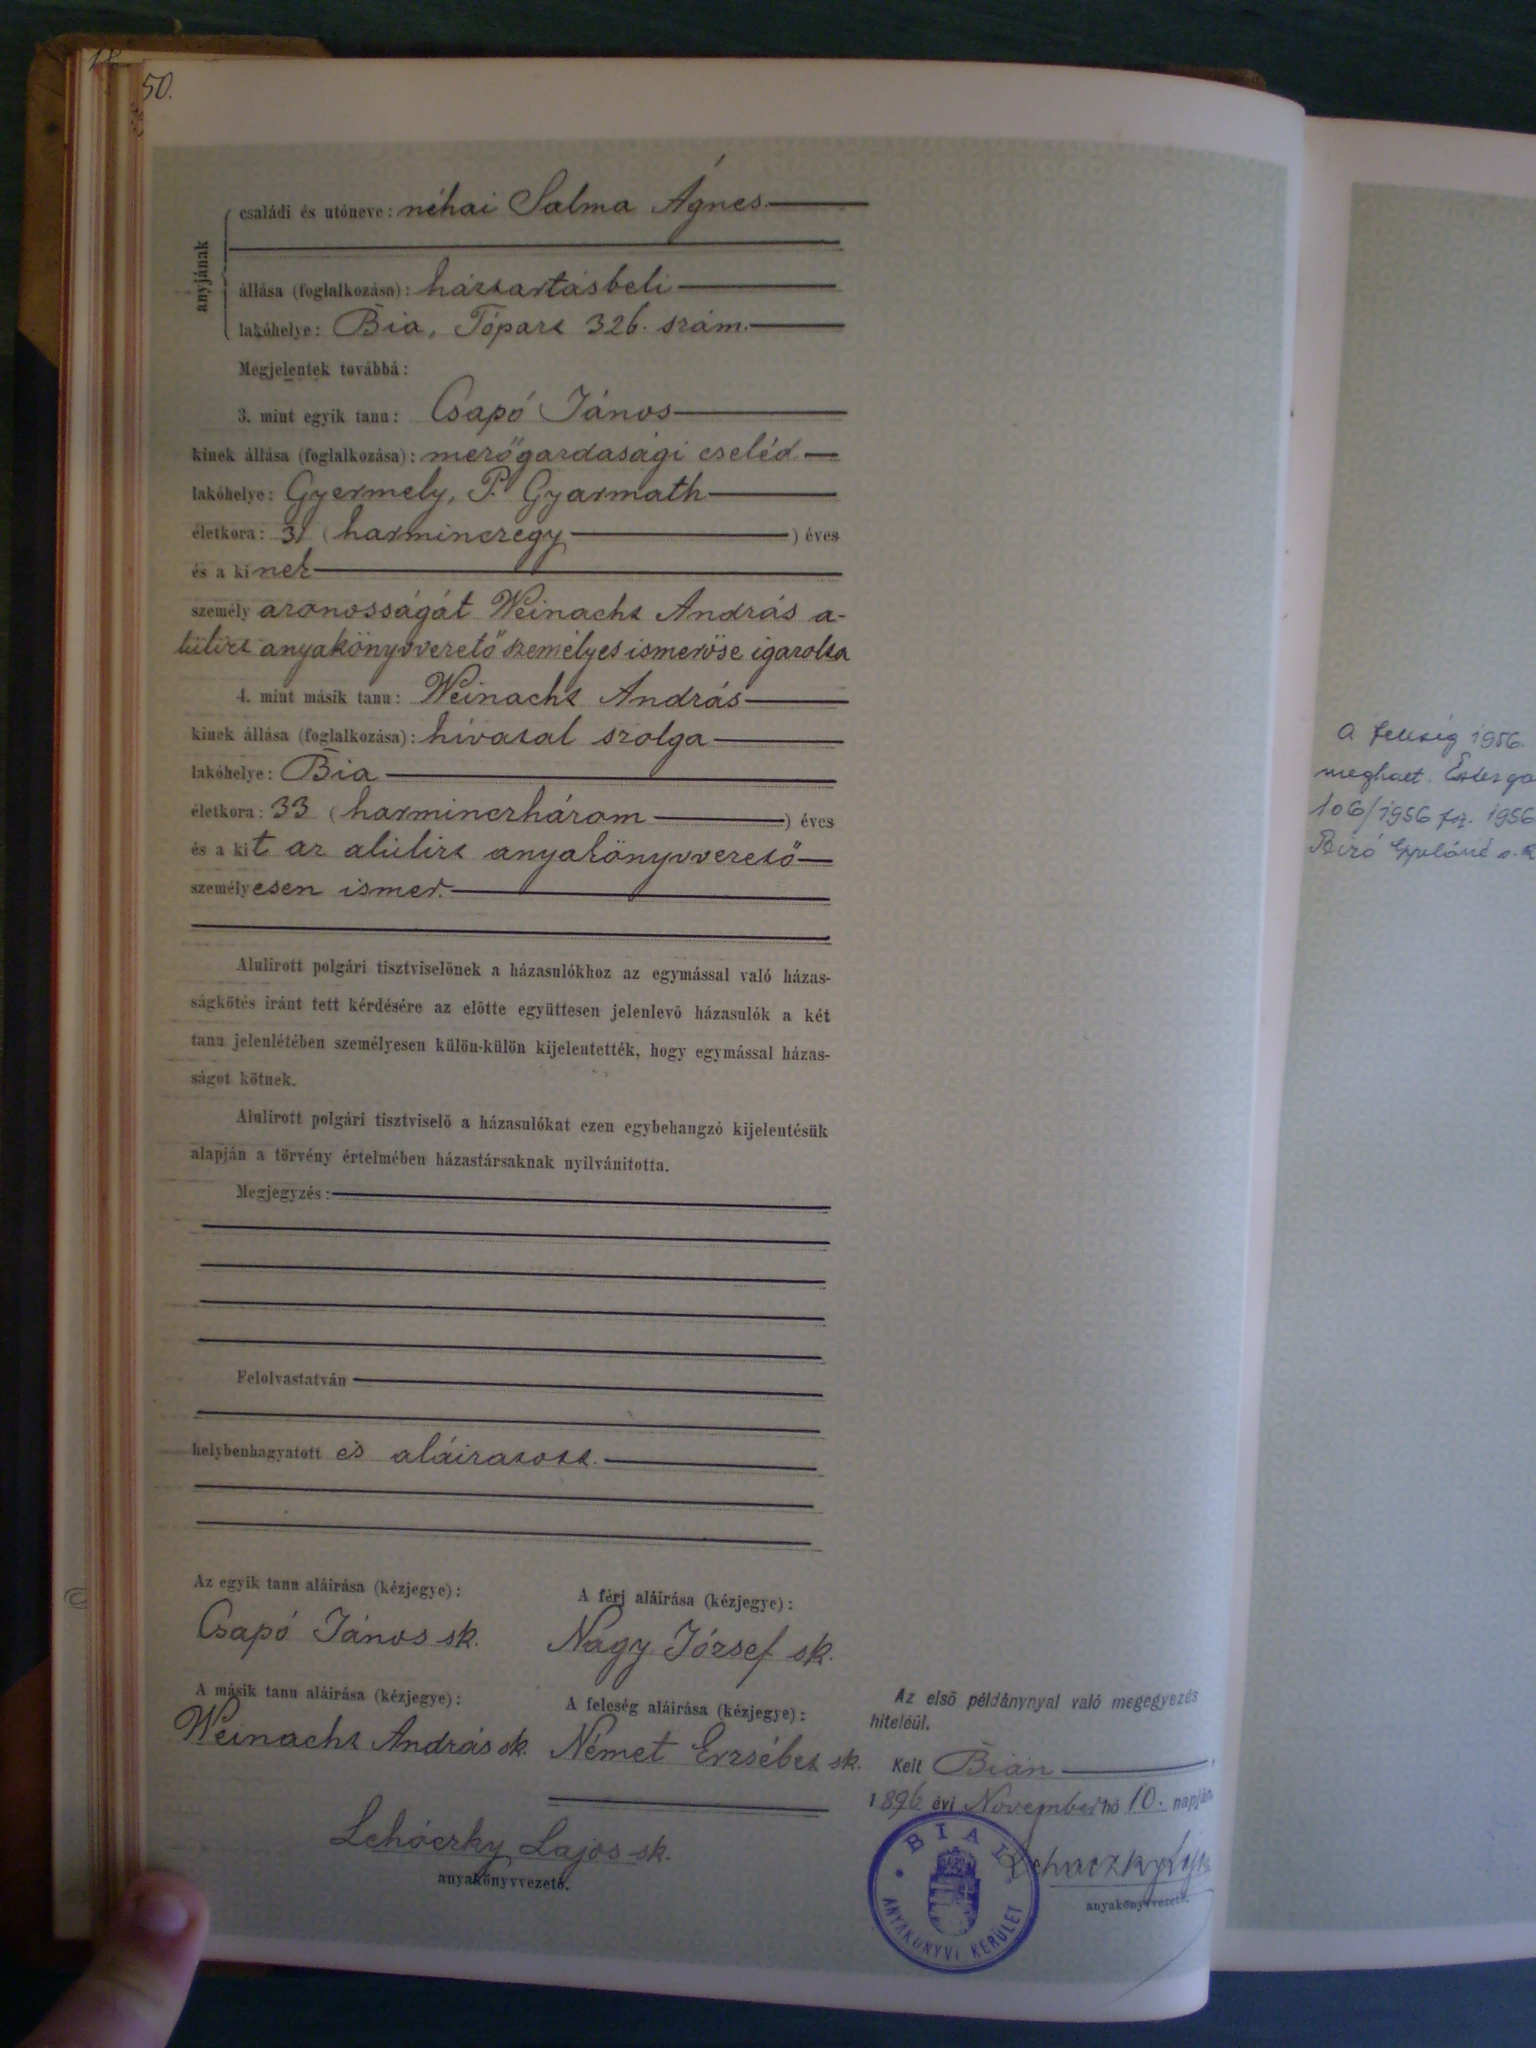 50.
anyjának
családi és utóneve: néhai Salma Ágnes
állása (foglalkozása): háztartásbeli
lakóhelye: Bia, Tópart 326. szám.
Megjelentek továbbá:
3. mint egyik tanu: Csapó János
kinek állása (foglalkozása): mezőgazdasági cseléd
lakóhelye: Gyermely, P. Gyarmath
életkora: 31 (harminczegy) éves
és a kinek
személy azonosságát Weinacht András a-
lulirt anyakönyvvezető személyes ismerőse igazolta
4. mint másik tanu: Weinacht András
kinek állása (foglalkozása): hivatal szolga
lakóhelye: Bia
életkora: 33 (harminczhárom) éves
és a kit az alulirt anyakönyvvezető
személyesen ismer.
Alulirott polgári tisztviselőnek a házasulókhoz az egymással való házas-
ságkötés iránt tett kérdésére az előtte együttesen jelenlevő házasulók a két
tanu jelenlétében személyesen külön-külön kijelentették, hogy egymással házas-
ságot kötnek.
Alulirott polgári tisztviselő a házasulókat ezen egybehangzó kijelentésük
alapján a törvény értelmében házastársaknak nyilvánitotta.
Megjegyzés:
Felolvastatván
helybenhagyatott és aláiratott.
Az egyik tanu aláirása (kézjegye):
Csapó János sk.
A férj aláirása (kézjegye):
Nagy József sk.
A másik tanu aláirása (kézjegye):
Weinacht András sk.
A feleség aláirása (kézjegye):
Német Erzsébet sk.
Lehóczky Lajos sk.
anyakönyvvezető.
Az első példánynyal való megegyezés
hiteléül.
Kelt Bián
1896 évi November hó 10. napján
Lehoczky Lajos
anyakönyvvezető.
BIAI
ANYAKÖNYVI KERÜLET
A feleség 1956.
meghalt.
106/1956 1956
Biró